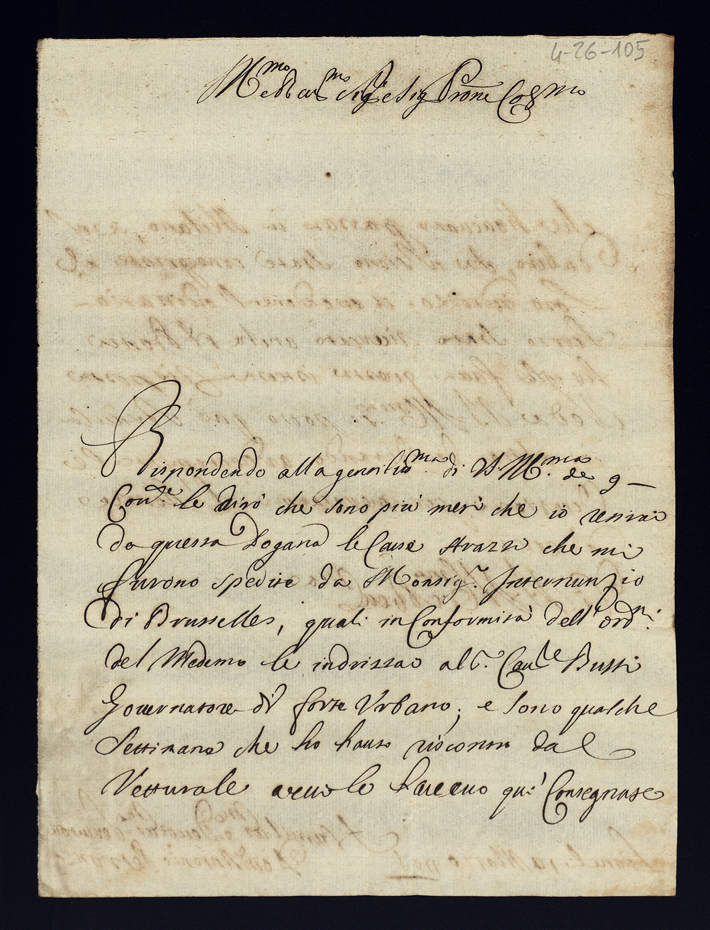 4-26-105
Ill.mo e Rev.mo Sig.re e Sig. Prone Col.mo
Rispondendo alla gentiliss.ma di V.S. Ill.ma de 9
Cor.te le dirò che sono più mesi che io retirai
da questa Dogana le Casse Arazzi che mi
furono spedite da Monsig.r Internunzio
di Brusselles, quali in Conformità dell'ord.i
del Medemo le indrizzao al S.r Cau.re Bussi
Gouernatore di forte Vrbano, e sono qualche
Settimane che ho hauto riscontro dal
Vetturale a cui le haueuo qui Consegnate